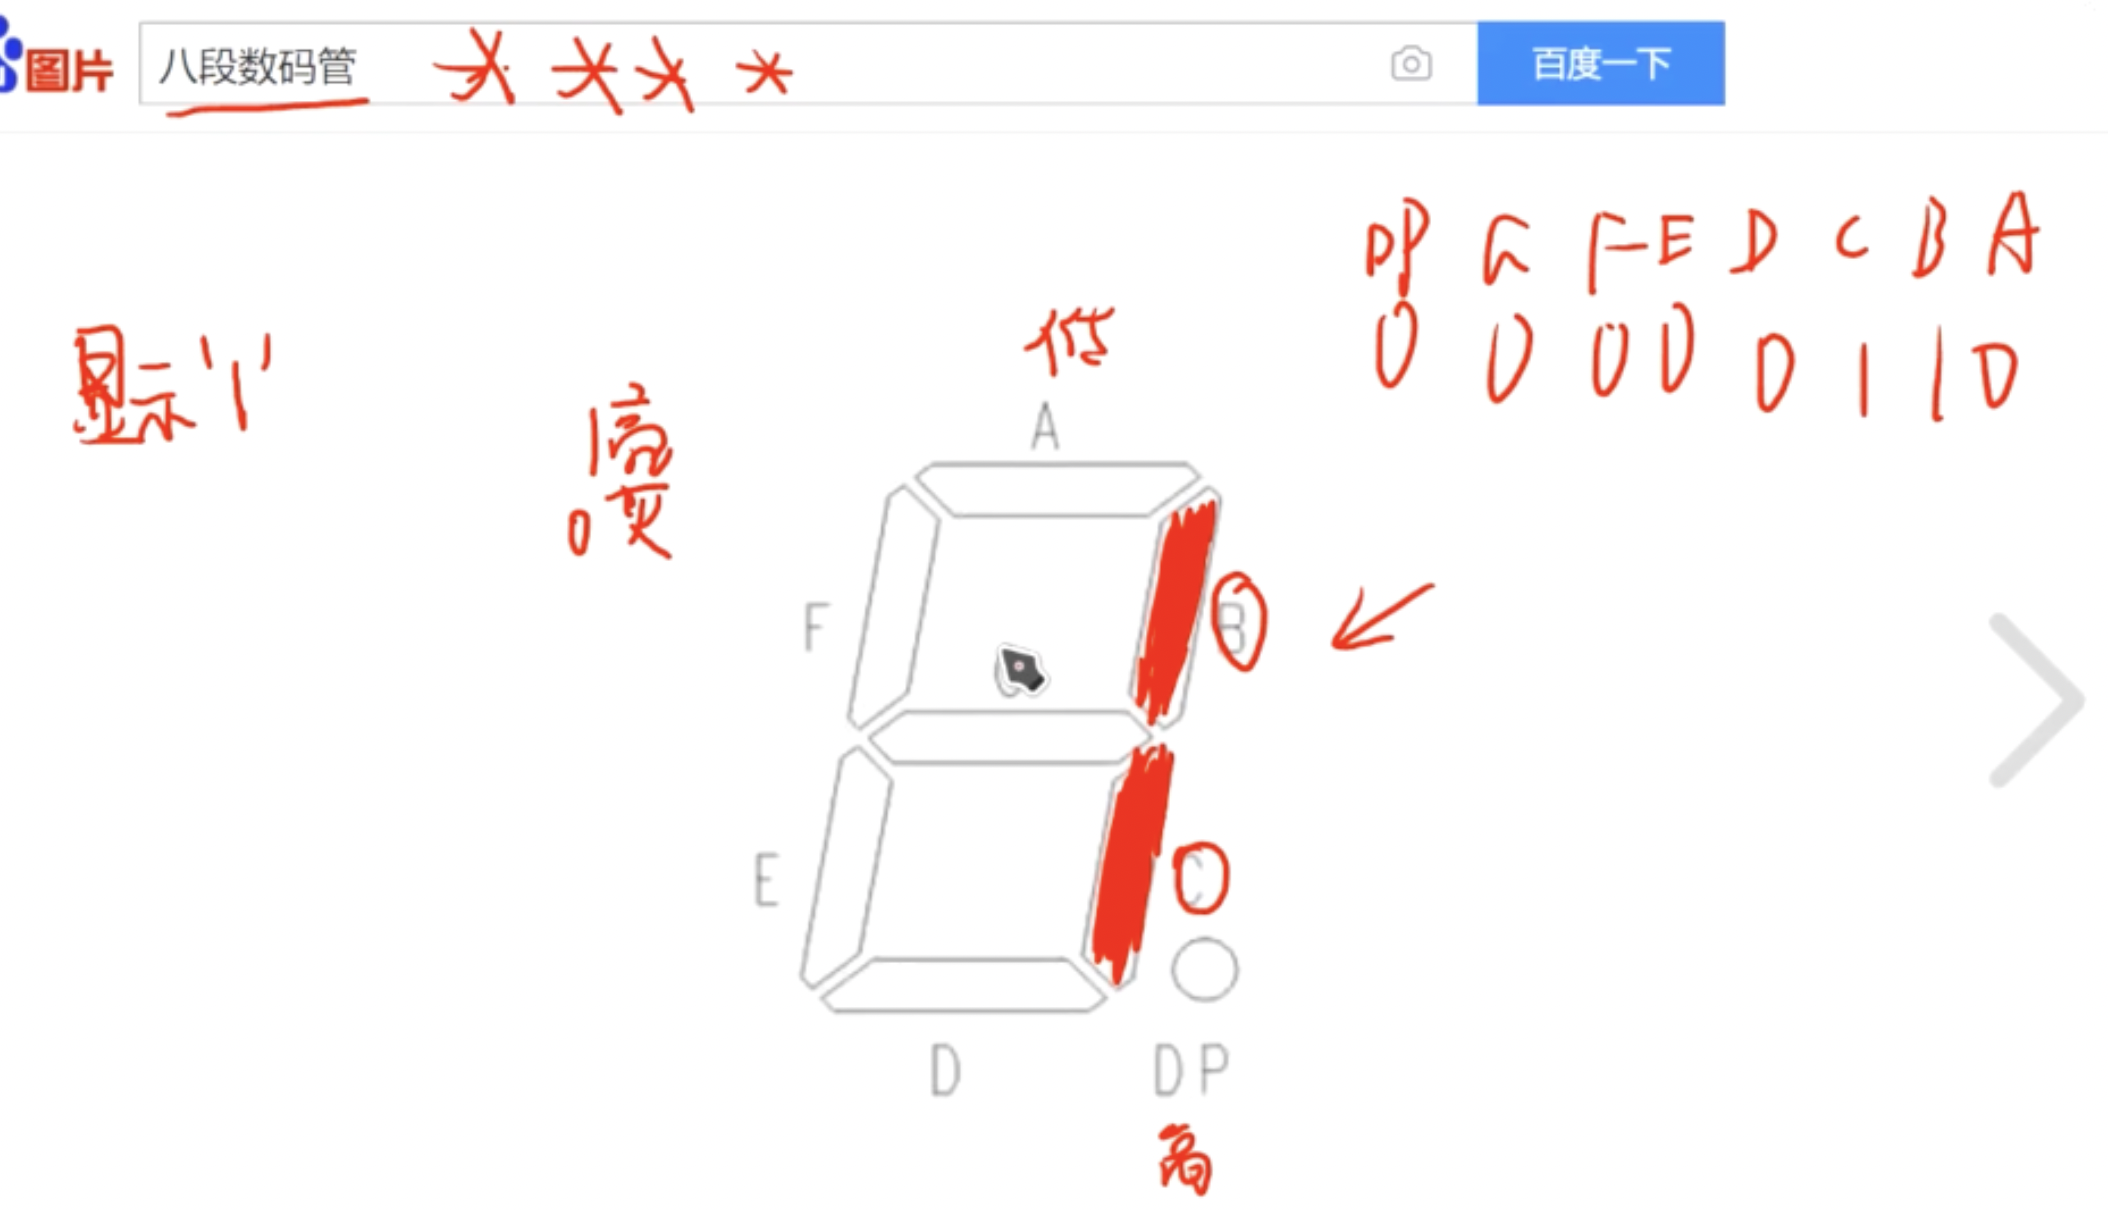 图片 八段数码管 百度一下
DP G F E D C B A
0 0 0 0 0 1 1 0
显示"1"
低
1亮
0灭
A
F
B
E
C
D
DP
高